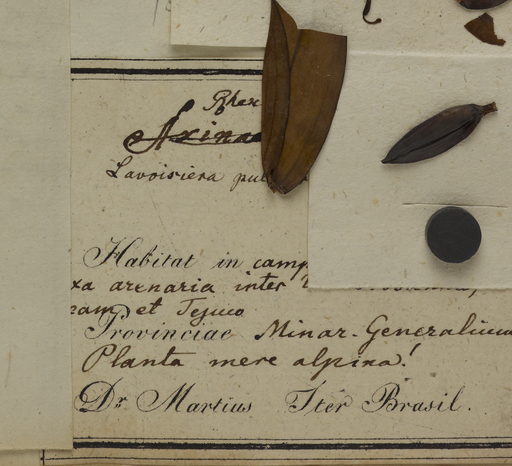 Lavoisiera
Habitat in camp
xa arenaria inter
et Tejuco
Provinciae Minar. Generalium
Planta mere alpina!
Dr. Martius Iter Brasil.